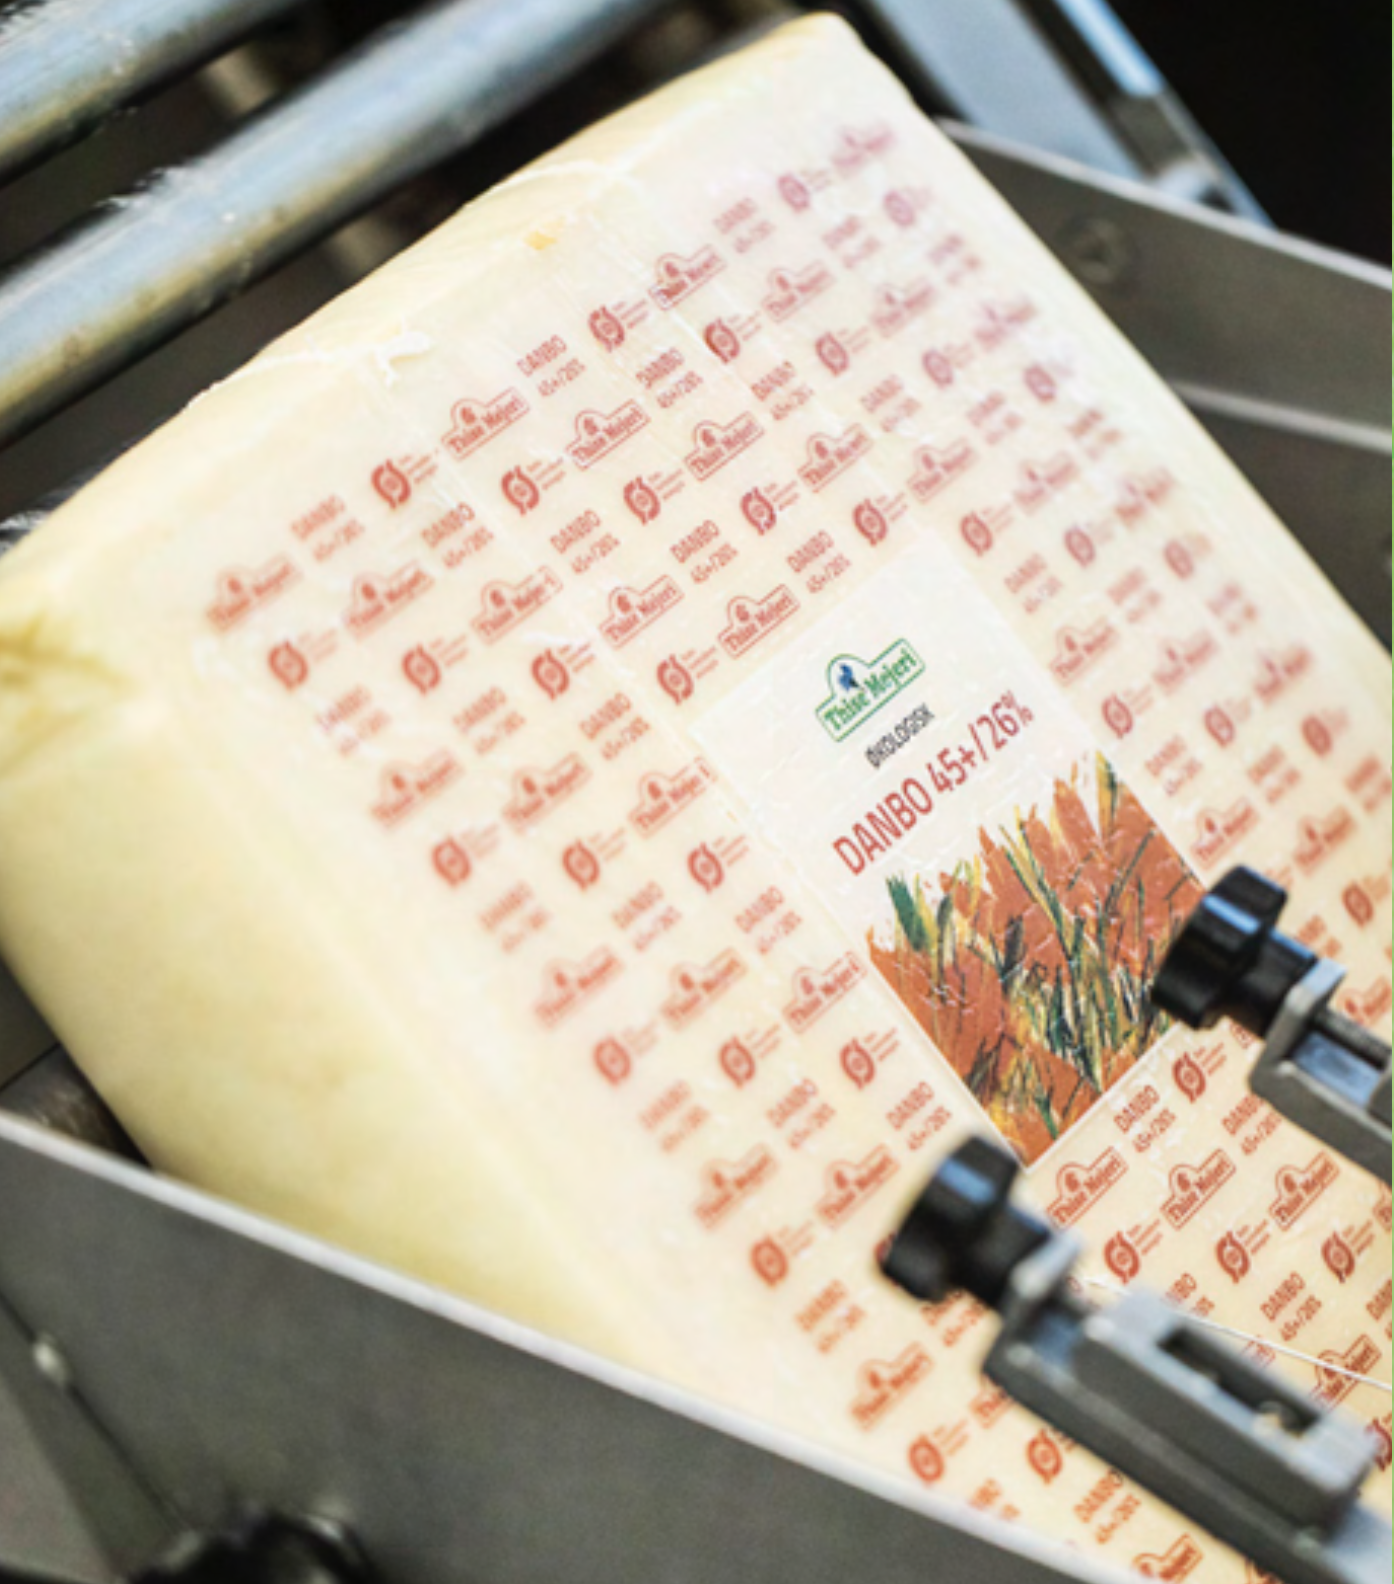 Thise Mejeri
ØKOLOGISK
DANBO 45+/26%
Thise Mejeri
DANBO
45+/26%